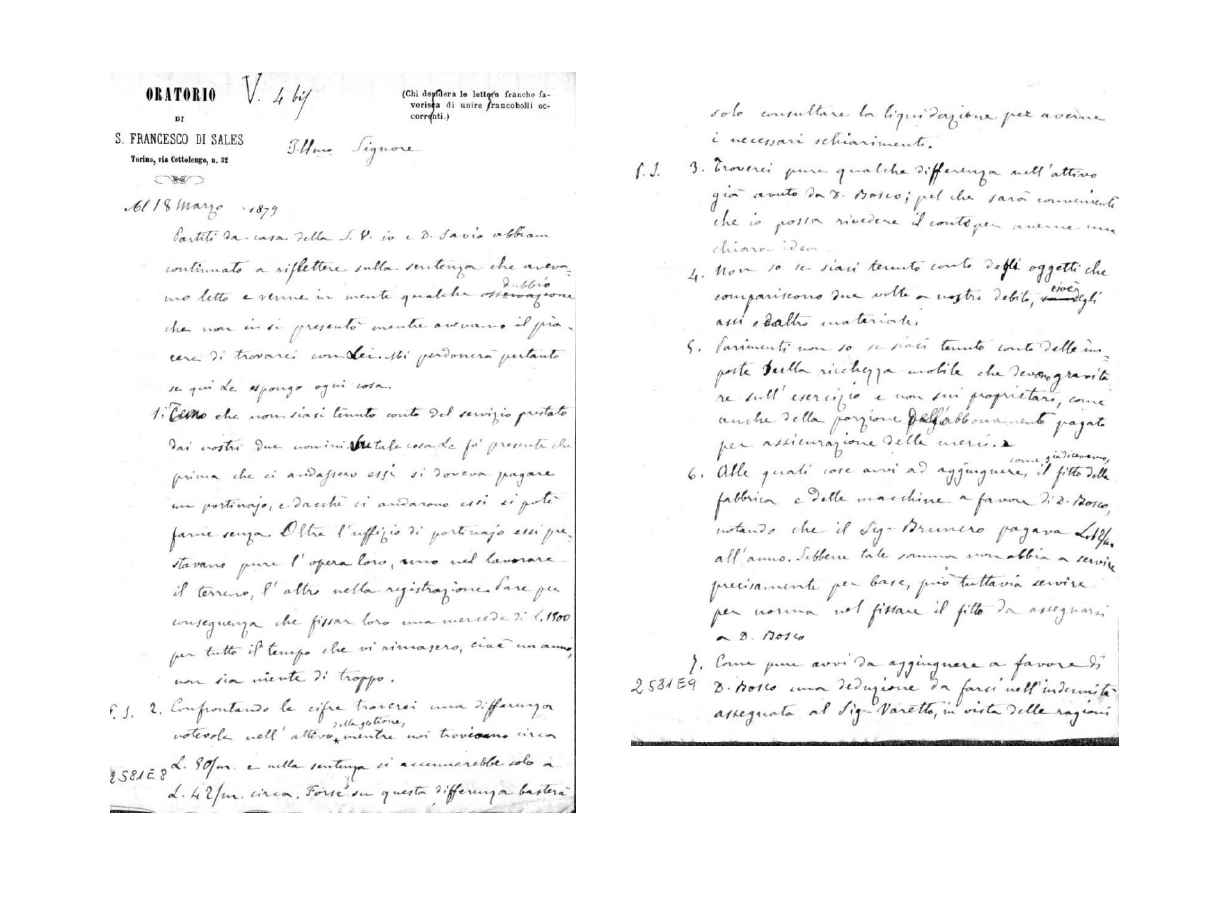 ORATORIO
DI
S. FRANCESCO DI SALES
Torino, via Cottolengo, n. 32
V. 4 bis
(Chi desidera le lettere franche fa-
vorisca di unire francobolli oc-
correnti.)
Illmo Signore
Al 18 Marzo 1879
Partiti da casa della S. V. io e D. Savio abbiam
continuato a riflettere sulla sentenza che aveva-
mo letto e venne in mente qualche osservazione
dubbio
che non ci si presentò mentre avevamo il pia-
cere di trovarci con Lei. Mi perdonerà pertanto
se qui Le espongo ogni cosa.
1. Temo che non siasi tenuto conto del servizio prestato
dai nostri due uomini. Su tale cosa Le fo' presente che
prima che ci andassero essi si doveva pagare
un portinajo, e dacchè ci andarono essi si potè
farne senza. Oltre l'uffizio di portinajo essi pre-
stavano pure l'opera loro, uno nel lavorare
il terreno, l'altro nella registrazione. Pare per
conseguenza che fissar loro una mercede di L. 1800
per tutto il tempo che vi rimasero, cioè un anno,
non sia niente di troppo.
2. Confrontando le cifre troverei una differenza
notevole nell'attivo mentre noi troviamo circa
della gestione,
L. 80/m. e nella sentenza si accennerebbe solo a
L. 42/m. circa. Forse su questa differenza basterà
2581E8
solo consultare la liquidazione per averne
i necessari schiarimenti.
3. Troverei pure qualche differenza nell'attivo
già avuto da D. Bosco; pel che sarà conveniente
che io possa rivedere il conto per averne una
chiara idea.
4. Non so se siasi tenuto conto degli oggetti che
compariscono due volte a nostro debito, cioè degli
assi ed altro materiale.
5. Parimenti non so se siasi tenuto conto delle im-
poste sulla ricchezza mobile che devono gravita
re sull'esercizio e non sui proprietari, come
anche della porzione dell'abbonamento pagato
per assicurazione delle merci.
6. Alle quali cose avvi ad aggiugnere, il fitto della
come giudicavamo,
fabbrica e delle macchine a favore di D. Bosco,
notando che il Sig. Brunero pagava L. 12/m
all'anno. Sebbene tale somma non abbia a servire
precisamente per base, può tuttavia servire
per norma nel fissare il fitto da assegnarsi
a D. Bosco
7. Come pure avvi da aggiugnere a favore di
D. Bosco una deduzione da farsi nell'indennità
assegnata al Sig. Varetto, in vista delle ragioni
2581E9